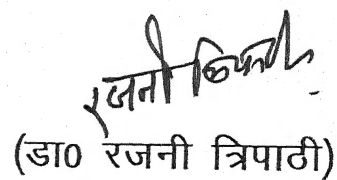 रजनी त्रिपाठी
(डा0 रजनी त्रिपाठी)